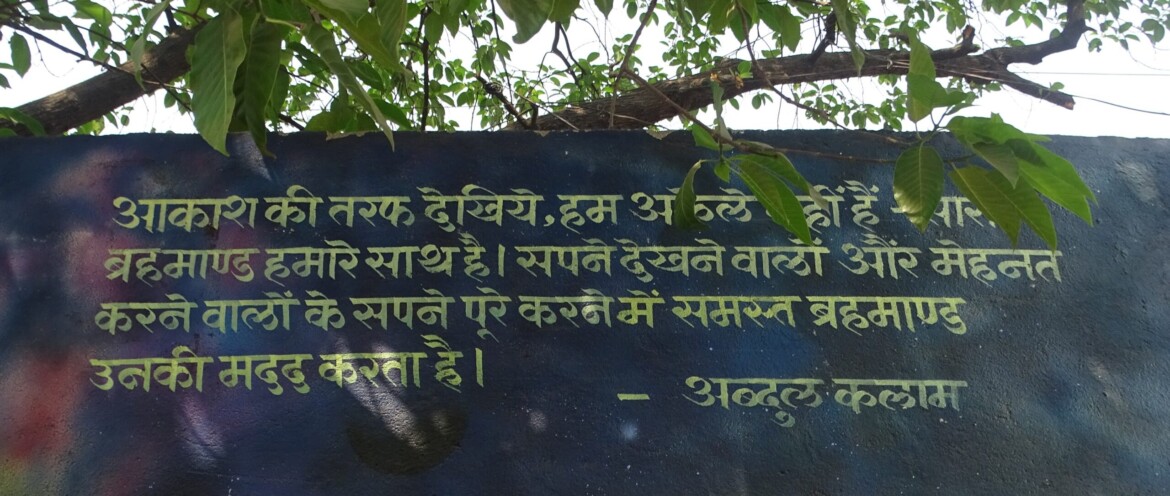 आकाश की तरफ देखिये, हम अकेले नहीं हैं
ब्रहमाण्ड हमारे साथ है। सपने देखने वालों और मेहनत
करने वालों के सपने पूरे करने में समस्त ब्रहमाण्ड
उनकी मदद करता है।
– अब्दुल कलाम